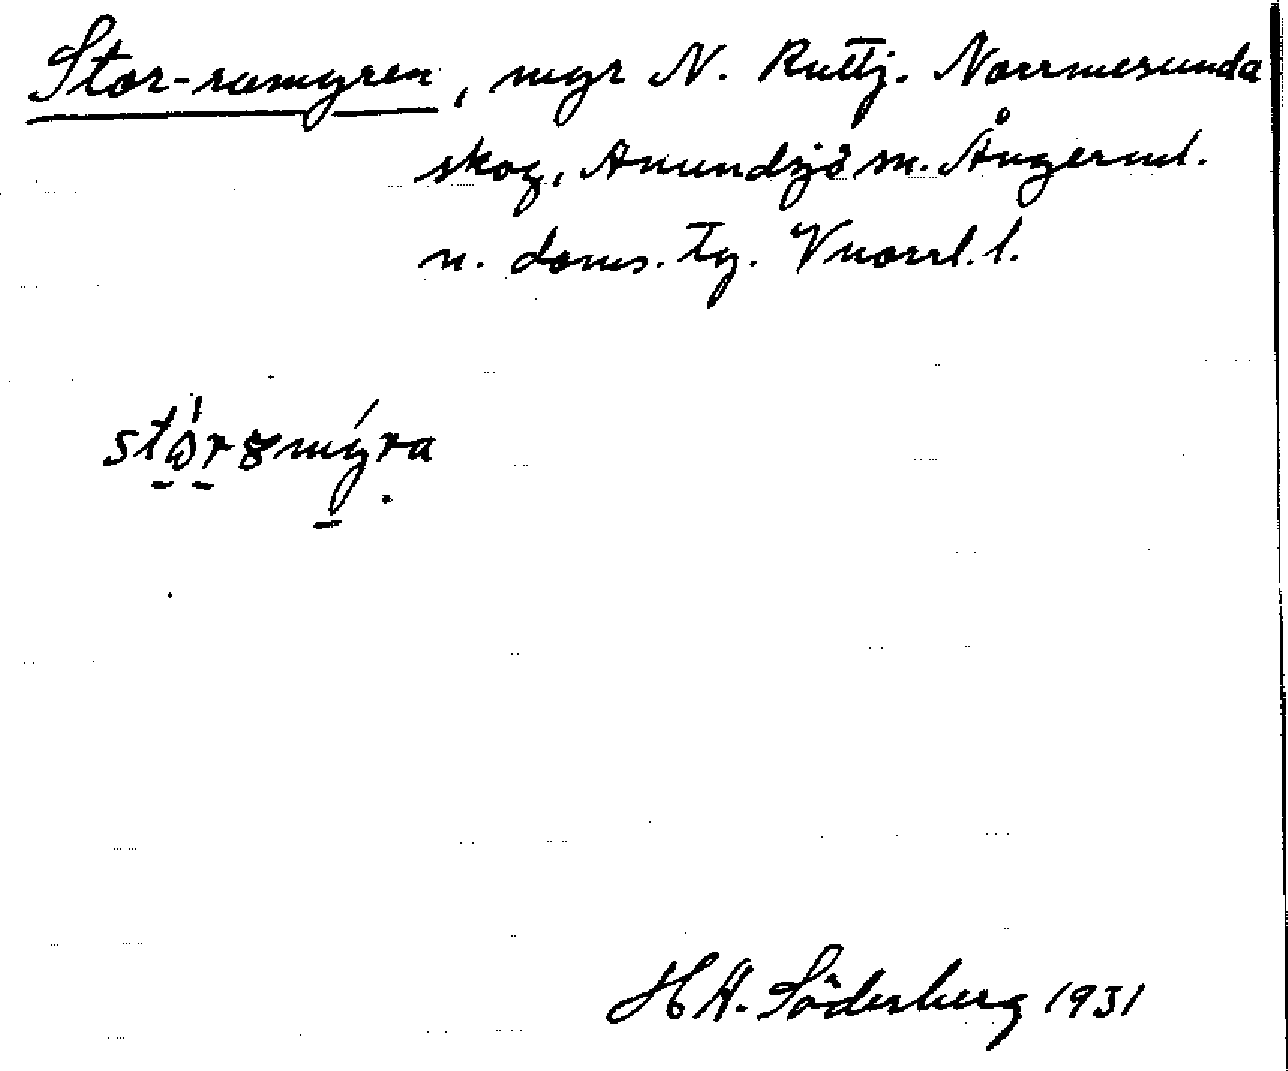 Stor-rumyren, myr N. Ruttj. Norrmesunda
skog, Anundsjö sn. Ångerml.
n. doms. tg. Vnorrl. l.
H A. Söderberg 1931